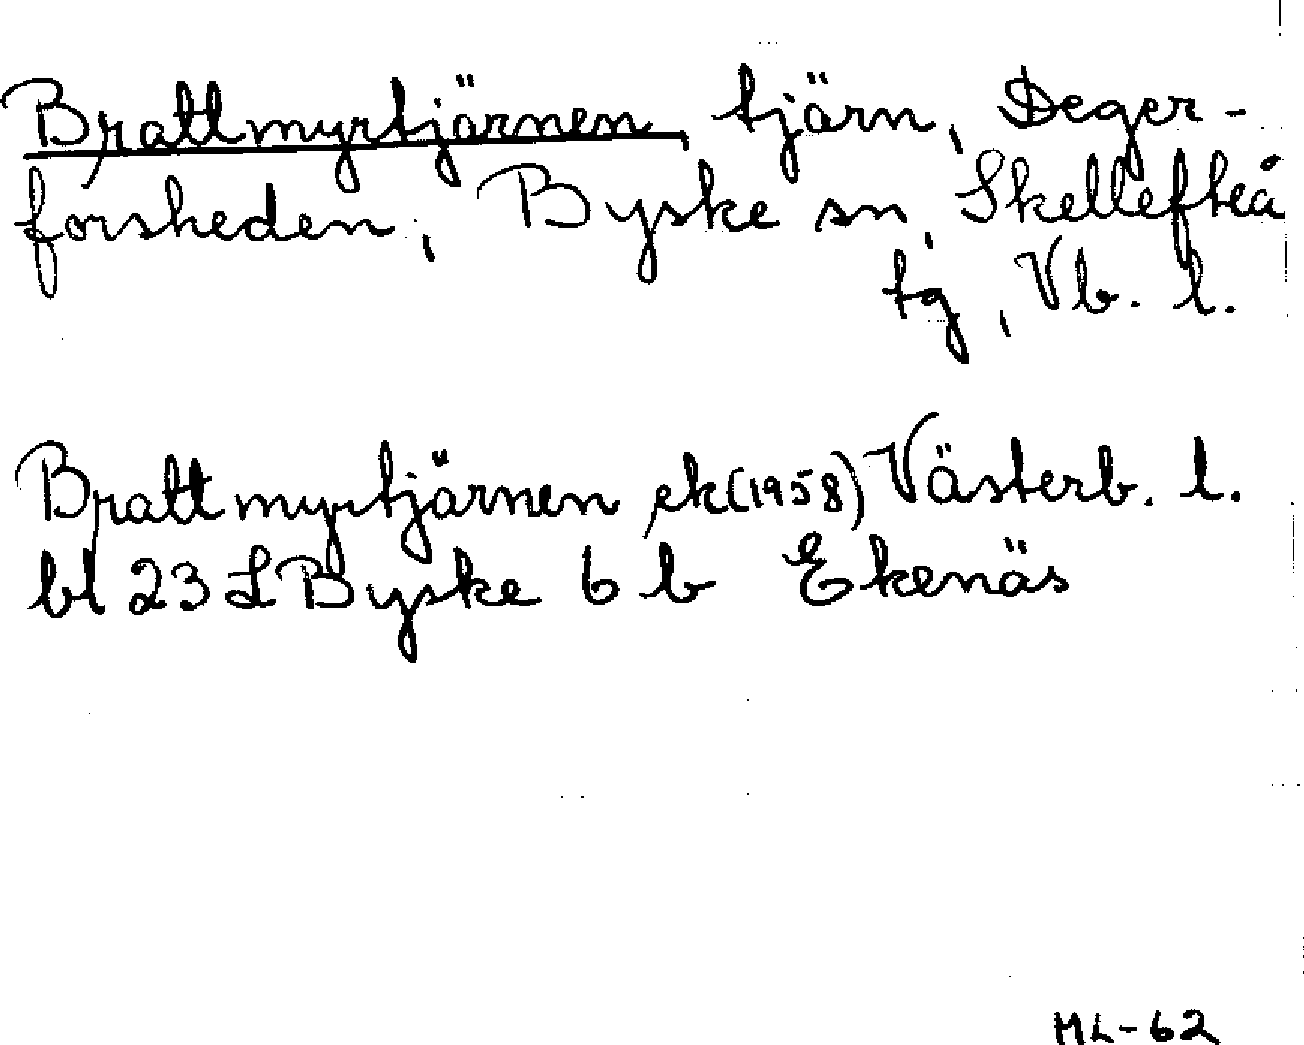 Brattmyrtjärnen, tjärn, Deger-
forsheden, Byske sn, Skellefteå
tg, Vb. l.
Brattmyrtjärnen, ek(1958) Västerb. l.
bl 23 L Byske 6 b Ekenäs
ML-62